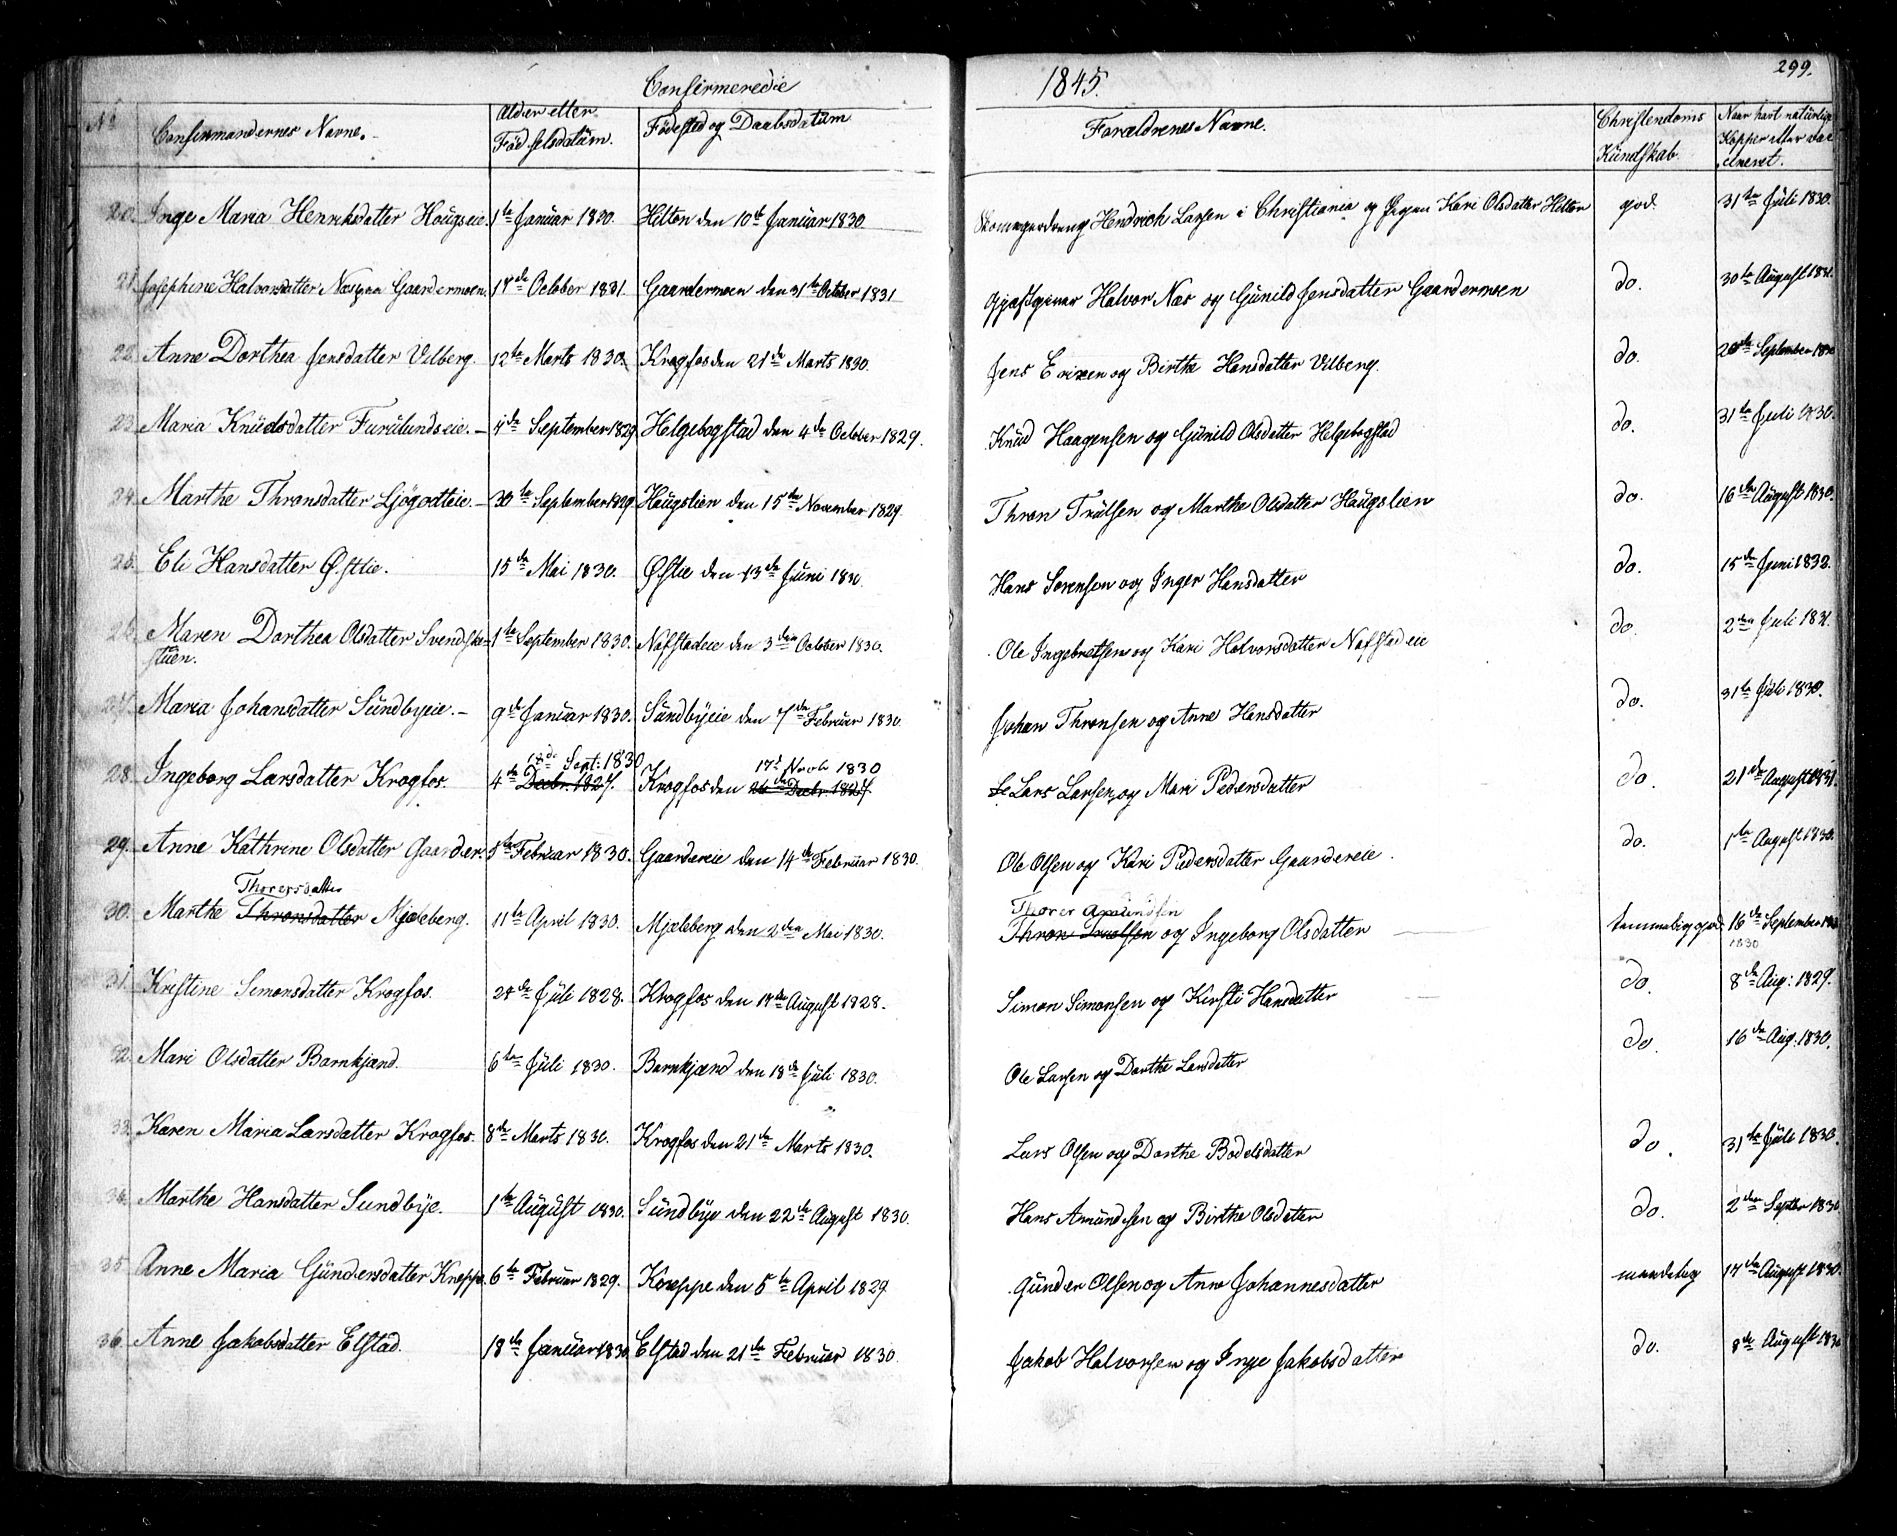 Confirmerede 1845. 299.
No Confirmandernes Navne. Alder eller Födselsdatum. Födested og Daabsdatum Forældrenes Navne. Christendoms Kündskab. Naar havt natürlige Kopper eller vaccineret.
20. Inge Maria Henriksdatter Haugseie. 1ste Januar 1830. Hilton den 10de Januar 1830. Hendrich Larsen i Christiania og Pigen Kari Olsdatter Hilton god. 31te Juli 1830.
21. Josephine Halvorsdatter Næs paa Gaardermoen. 17de October 1831. Gaardermoen den 31te October 1831 Gjæstgiver Halvor Næs og Günild Jensdatter Gaardermoen do. 30te August 1831.
22. Anne Dorthea Jensdatter Vilberg. 12te Marts 1830. Krogfos den 21de Marts 1830. Jens Erixen og Birthe Hansdatter Vilberg. do. September
23. Maria Knüdsdatter Furulundseie. September 1829 Helgebogstad den 4de October 1829. Knüd Haagensen og Günild Olsdatter Helgebogstad do. 31te Juli 1830.
24. Marthe Thronsdatter Ljögodteie. 30te September 1829 Haugslien den 15de November 1829. Thron Trülsen og Marthe Olsdatter Haügslien do. 16de August 1830.
25. Eli Hansdatter Østlie. 15de Mai 1830. Østlie den 13de Juni 1830. Hans Sörensen og Inger Hansdatter do. 15de Juni 1832.
26. Maren Dorthea Olsdatter Svendskestüen. 1ste September 1830. Nafstadeie den 3den October 1830. Ole Ingebretsen og Kari Halvorsdatter Nafstadeie do. 2den Juli 1831.
27. Maria Johansdatter Sündbyeie. 9de Januar 1830. Sündbyeie den 7de Februar 1830. Johan Thronsen og Anne Hansdatter do. 31te Juli 1830.
18de Sept: 1830 17d Novb 1830
28. Ingeborg Larsdatter Krogfos. 4de Decbr. 1827. Krogfos den 26de Decbr. 1827. Lars Larsen og Mari Pedersdatter do. 21de August 1831.
29. Anne Kathrine Olsdatter Gaarder. 5te Februar 1830. Gaardereie den 14de Februar 1830. Ole Olsen og Kari Pedersdatter Gaardereie. do. 1ste August 1830.
Thorersdatter Thorer Amundsen
30. Marthe Thronsdatter Mjæleberg. 11te April 1830. Mjæleberg den 2den Mai 1830. Thron Truelsen og Ingeborg Olsdatter temmelig god. 16de September
1830
31. Kristine Simonsdatter Krogfos. Juli 1828. Krogfos den August 1828. Simon Simonsen og Kirsti Hansdatter do. 8de Aug: 1829.
32. Mari Olsdatter Barnkjænd. 6te Juli 1830. Barnkjænd den 18de Juli 1830. Ole Larsen og Dorthe Larsdatter do. 16de Aug. 1830.
33. Karen Maria Larsdatter Krogfos. 8de Marts 1830. Krogfos den 21de Marts 1830. Lars Olsen og Dorthe Bodelsdatter do. 31te Juli 1830.
34. Marthe Hansdatter Sundbye. 1ste August 1830. Sündbye den 22de August 1830. Hans Amündsen og Birthe Olsdatter do. 2den Septbr 1830.
35. Anne Maria Gündersdatter Kneppe. 6te Februar 1829. Kneppe den 5te April 1829. Gunder Olsen og Anne Johannesdatter maadelig 17de August 1830.
36. Anne Jakobsdatter Elstad. 18de Januar 1830. Elstad den 21de Februar 1830. Jakob Halvorsen og Inge Jakobsdatter do. 8de August 1830